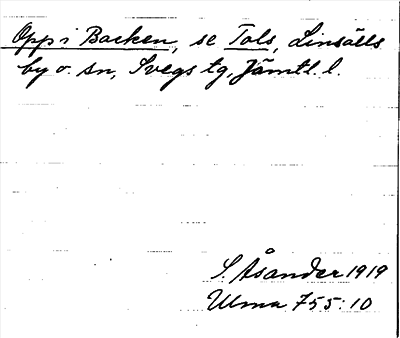 Opp i Backen, se Tols, Linsälls
by o. sn, Svegs tg, Jämtl. l.
S. Åsander 1919
Ulma 755:10